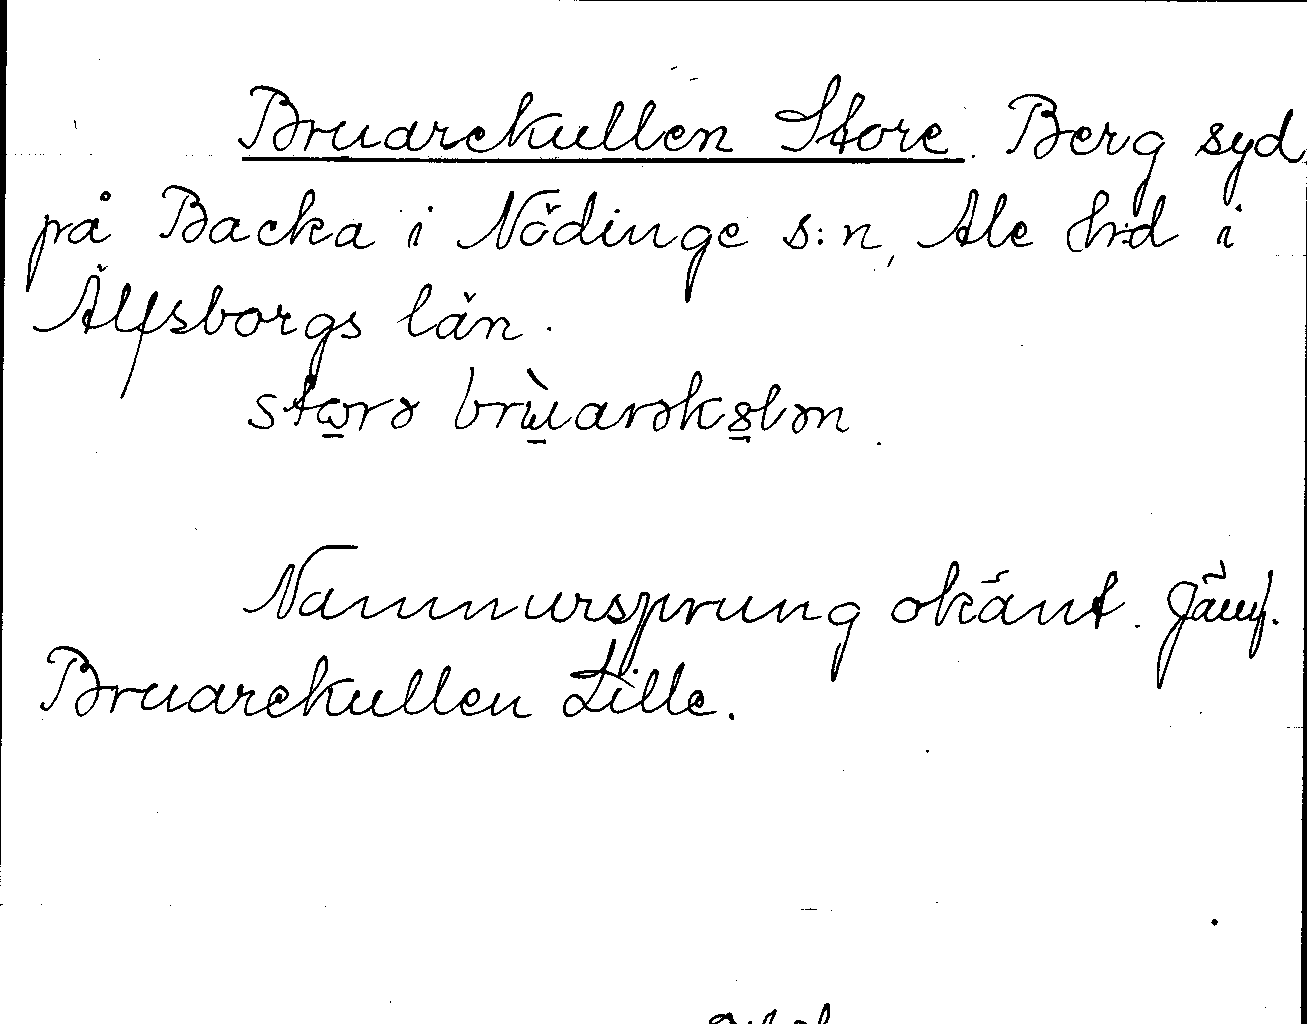 Bruarekullen Store. Berg syd
på Backa i Nödinge s:n, Ale hd i
Älfsborgs län.
storə brùarəkɵlən.
Namnursprung okänt. Jämf.
Bruarekullen Lille.